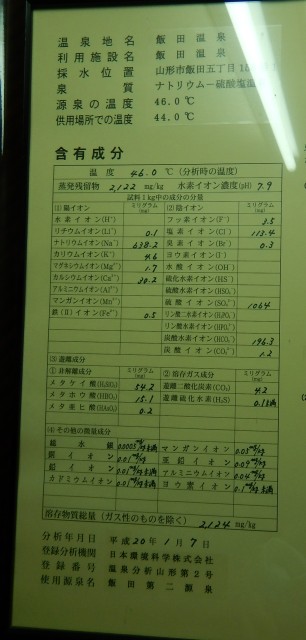 温泉地名 飯田温泉
利用施設名 飯田温泉
採水位置 山形市飯田五丁目
泉質 ナトリウム－硫酸塩温
源泉の温度 46.0℃
供用場所での温度 44.0℃
含有成分
温度 46.0 ℃(分析時の温度)
蒸発残留物 2,122 mg/kg 水素イオン濃度(pH) 7.9
試料1kg中の成分の分量
(1)陽イオン ミリグラム(mg) (2)陰イオン ミリグラム(mg)
水素イオン(H⁺) フッ素イオン(F⁻) 3.5
リチウムイオン(Li⁺) 0.1 塩素イオン(Cl⁻) 113.4
ナトリウムイオン(Na⁺) 638.2 臭素イオン(Br⁻) 0.3
カリウムイオン(K⁺) 4.6 ヨウ素イオン(I⁻)
マグネシウムイオン(Mg²⁺) 1.7 水酸イオン(OH⁻)
カルシウムイオン(Ca²⁺) 20.2 硫化水素イオン(HS⁻)
アルミニウムイオン(Al³⁺) 硫酸水素イオン(HSO₄⁻)
マンガンイオン(Mn²⁺) 硫酸イオン(SO₄²⁻) 1064
鉄(II)イオン(Fe²⁺) 0.5 リン酸二水素イオン(H₂PO₄⁻)
リン酸水素イオン(HPO₄²⁻)
炭酸水素イオン(HCO₃⁻) 196.3
炭酸イオン(CO₃²⁻) 1.2
(3)遊離成分
①非解離成分 ミリグラム(mg) ②溶存ガス成分 ミリグラム(mg)
メタケイ酸(H₂SiO₃) 54.2 遊離二酸化炭素(CO₂) 4.2
メタホウ酸(HBO₂) 15.1 遊離硫化水素(H₂S) 0.1未満
メタ亜ヒ酸(HAsO₂) 0.2
(4)その他の微量成分
総水銀 0.0005mg/kg未満 マンガンイオン 0.05mg/kg
銅イオン 0.01mg/kg 亜鉛イオン 0.09mg/kg
鉛イオン 0.01mg/kg未満 アルミニウムイオン 0.04mg/kg
カドミウムイオン 0.01mg/kg未満 ヨウ素イオン 0.1mg/kg未満
溶存物質総量(ガス性のものを除く) 2,124 mg/kg
分析年月日 平成20年1月7日
登録分析機関 日本環境科学株式会社
登録番号 温泉分析山形第2号
使用源泉名 飯田第二源泉